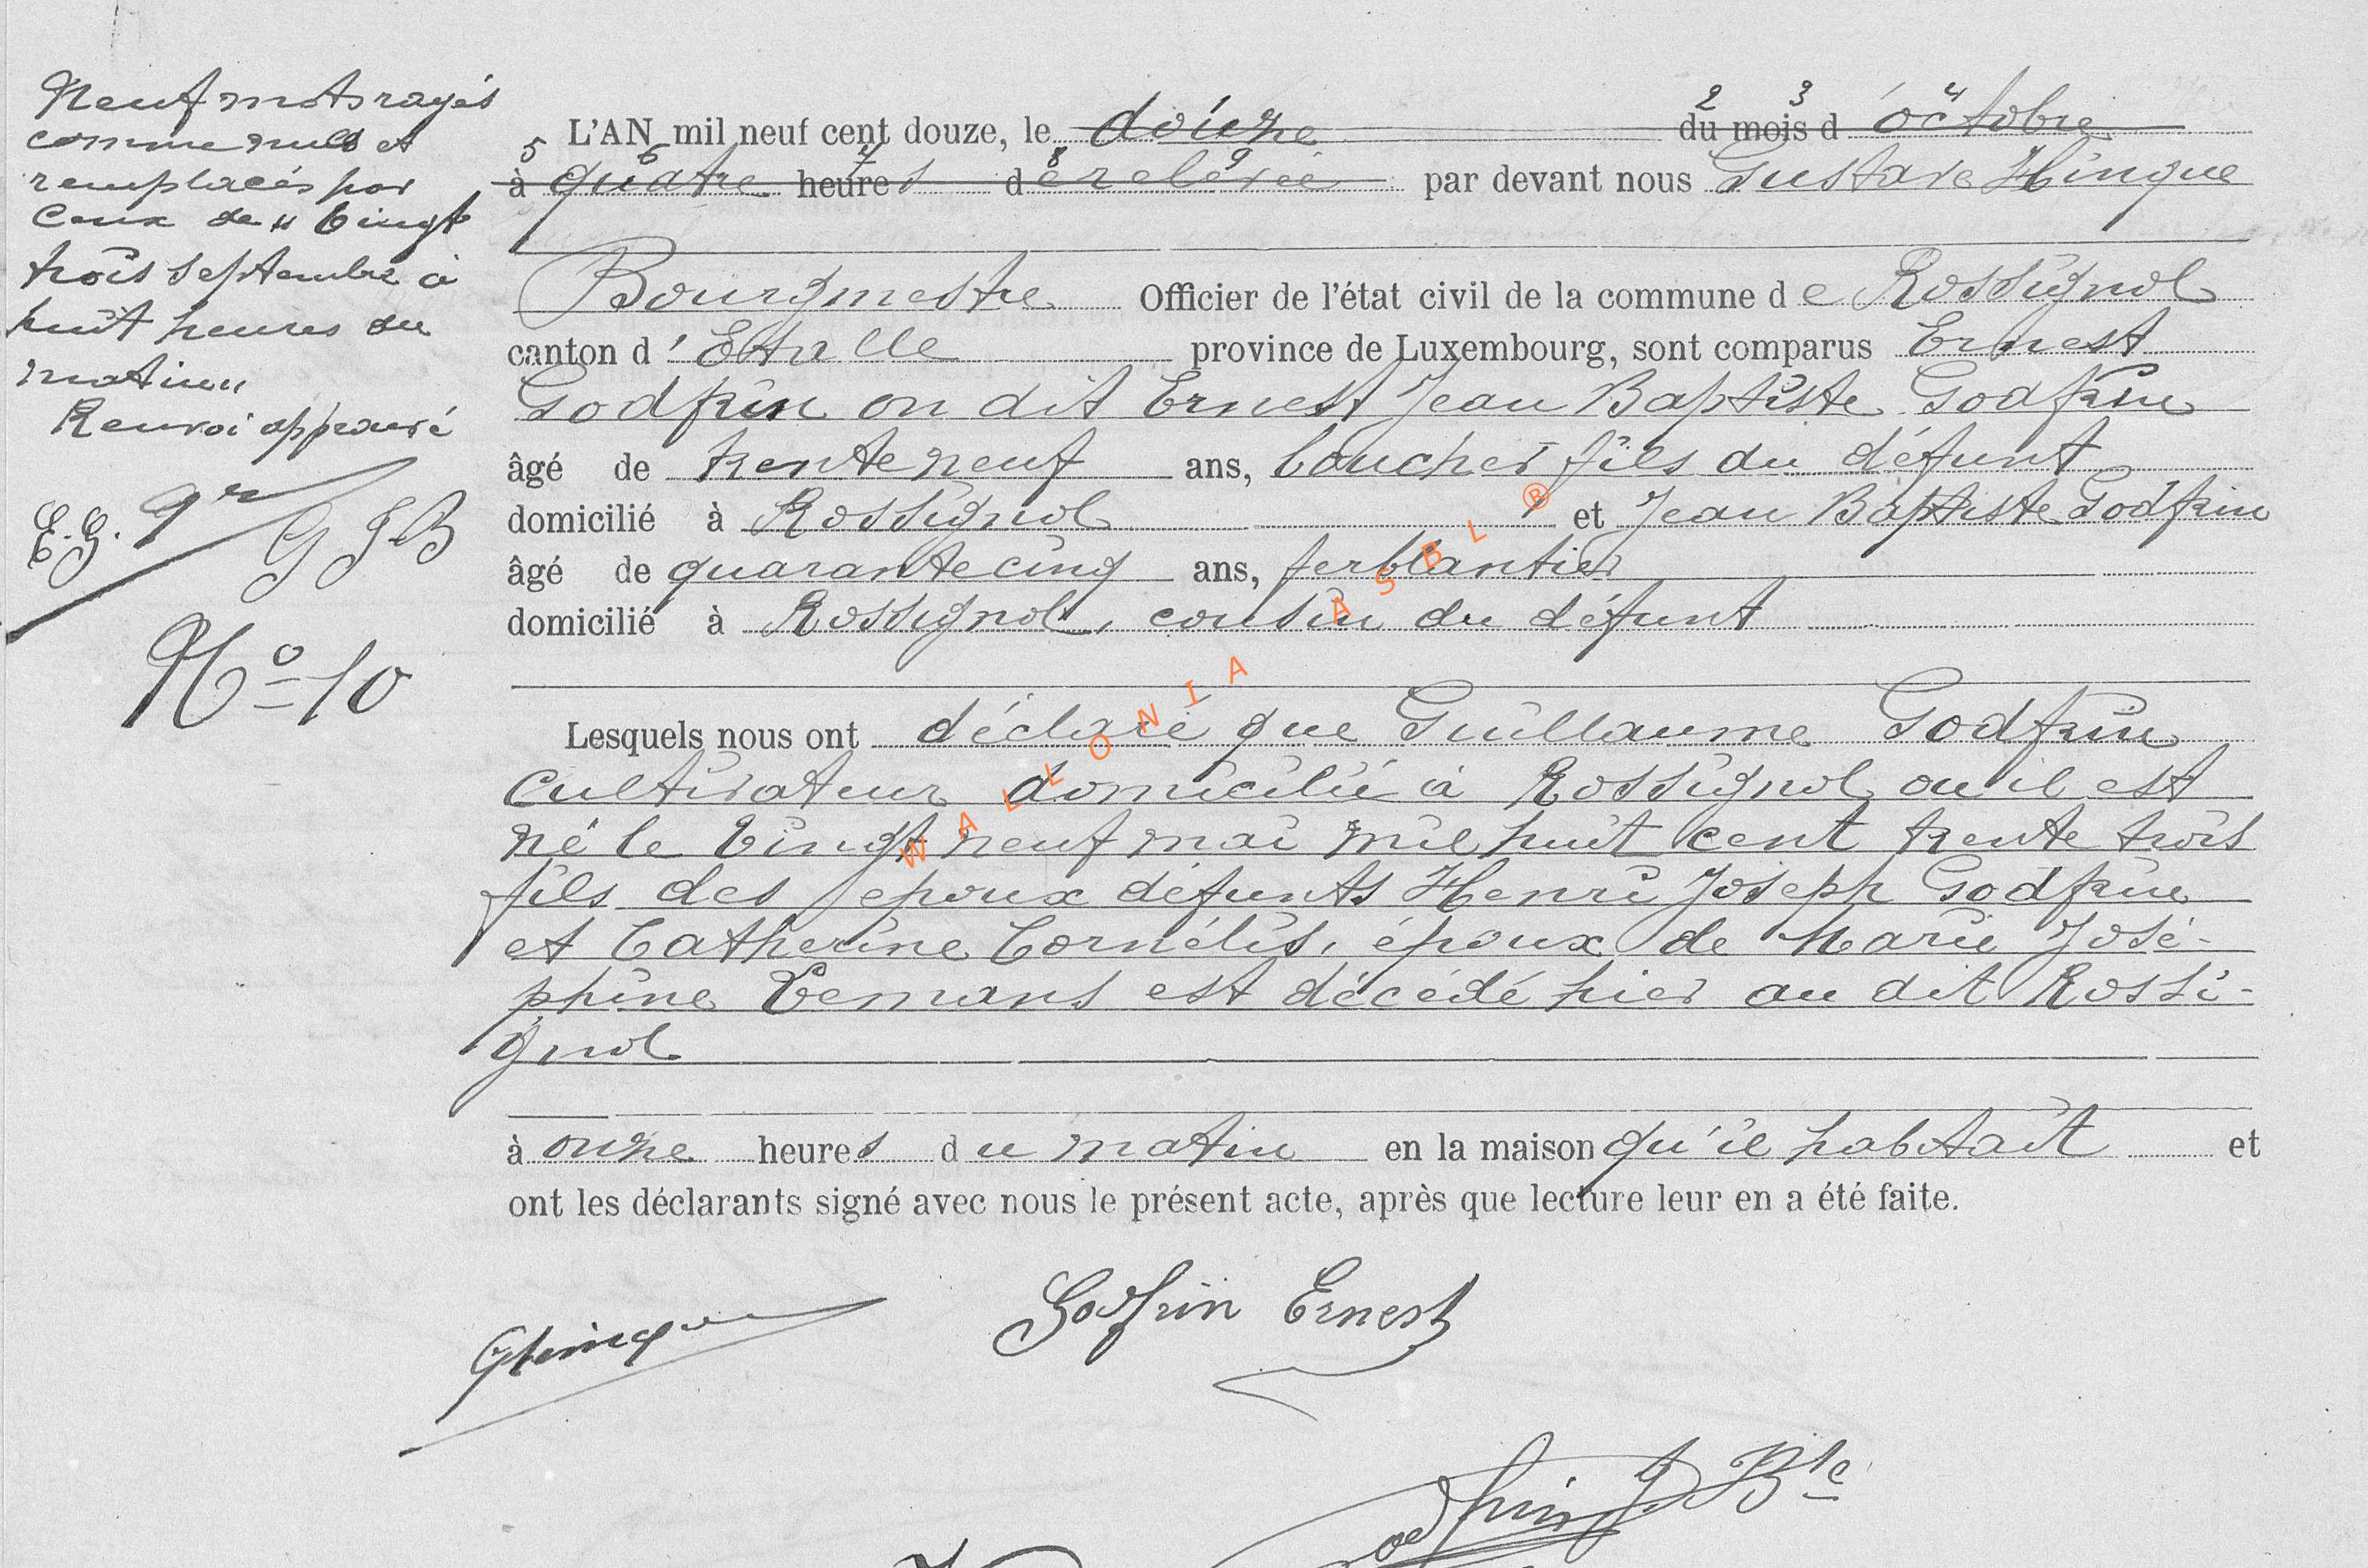 Neuf mots rayés
comme nuls et
remplacés par
ceux de "vingt
trois septembre à
huit heures du
matin"
Renvoi approuvé
E.G. GJB
No 10
L'AN mil neuf cent douze, le douze du mois d'octobre
1 2 3 4
à quatre heures de relevée par devant nous Gustave Hinque
5 6 7 8 9
Bourgmestre Officier de l'état civil de la commune de Rossignol
canton d'Etalle province de Luxembourg, sont comparus Ernest
Godfrin on dit Ernest Jean Baptiste Godfrin
âgé de trente neuf ans, boucher fils du défunt
domicilié à Rossignol et Jean Baptiste Godfrin
âgé de quarante cinq ans, ferblantier
domicilié à Rossignol, cousin du défunt
Lesquels nous ont déclaré que Guillaume Godfrin
cultivateur domicilié à Rossignol où il est
né le vingt neuf mai mil huit cent trente trois
fils des époux défunts Henri Joseph Godfrin
et Catherine Cornélis, époux de Marie José-
phine Lemans est décédé hier au dit Rossi-
gnol
à onze heures du matin en la maison qu'il habitait et
ont les déclarants signé avec nous le présent acte, après que lecture leur en a été faite.
GHinque
Godfrin Ernest
Godfrin J Bte
WALLONIA ASBL ®